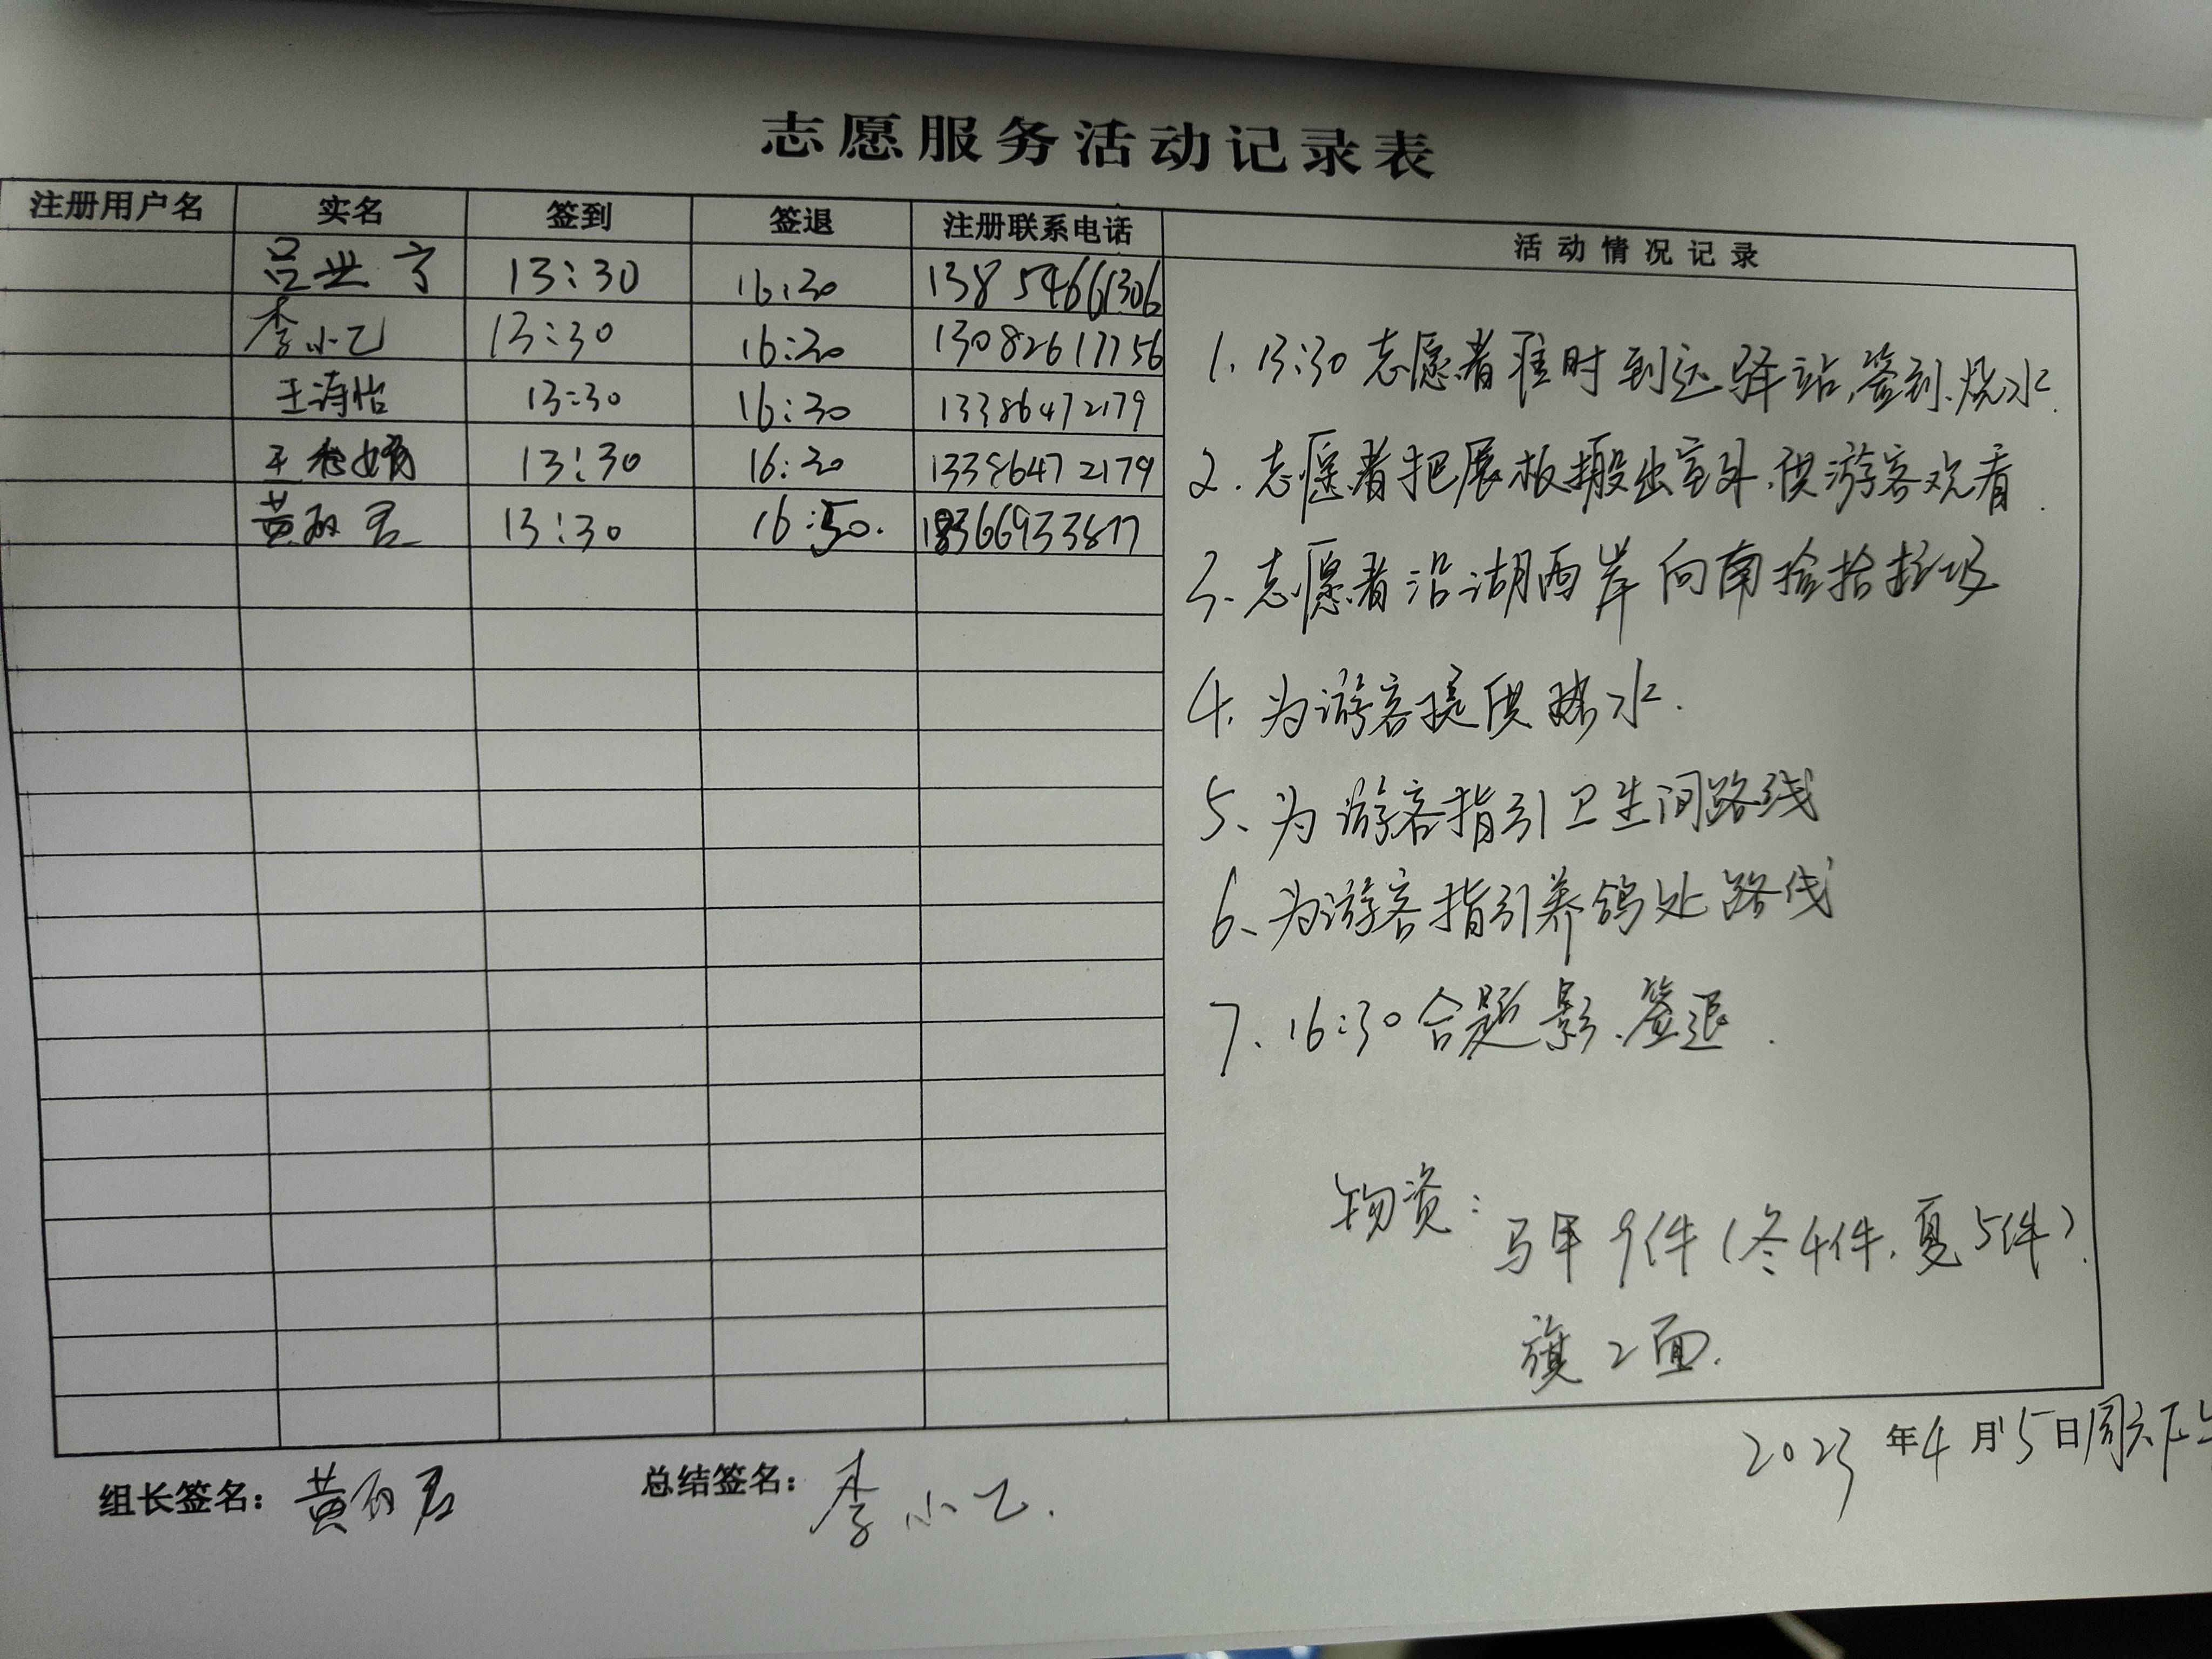 志愿服务活动记录表
注册用户名 实名 签到 签退 注册联系电话 活动情况记录
吕业 13:30 16:30 13854661306
李小乙 13:30 16:30 13082617756
王诗怡 13:30 16:30 13386472179
王 13:30 16:30 13386472179
黄 13:30 16:50. 18366933877
1. 13:30 志愿者准时到达驿站,签到、烧水.
2. 志愿者把展板搬出室外,供游客观看.
3. 志愿者沿湖西岸向南捡拾垃圾
4. 为游客提供热水.
5、为游客指引卫生间路线
6、为游客指引养鸽处路线
7、16:30 合题影、签退.
物资:
马甲9件(冬4件,夏5件).
旗2面.
2025年4月5日周六下午
组长签名: 黄 总结签名: 李小乙.